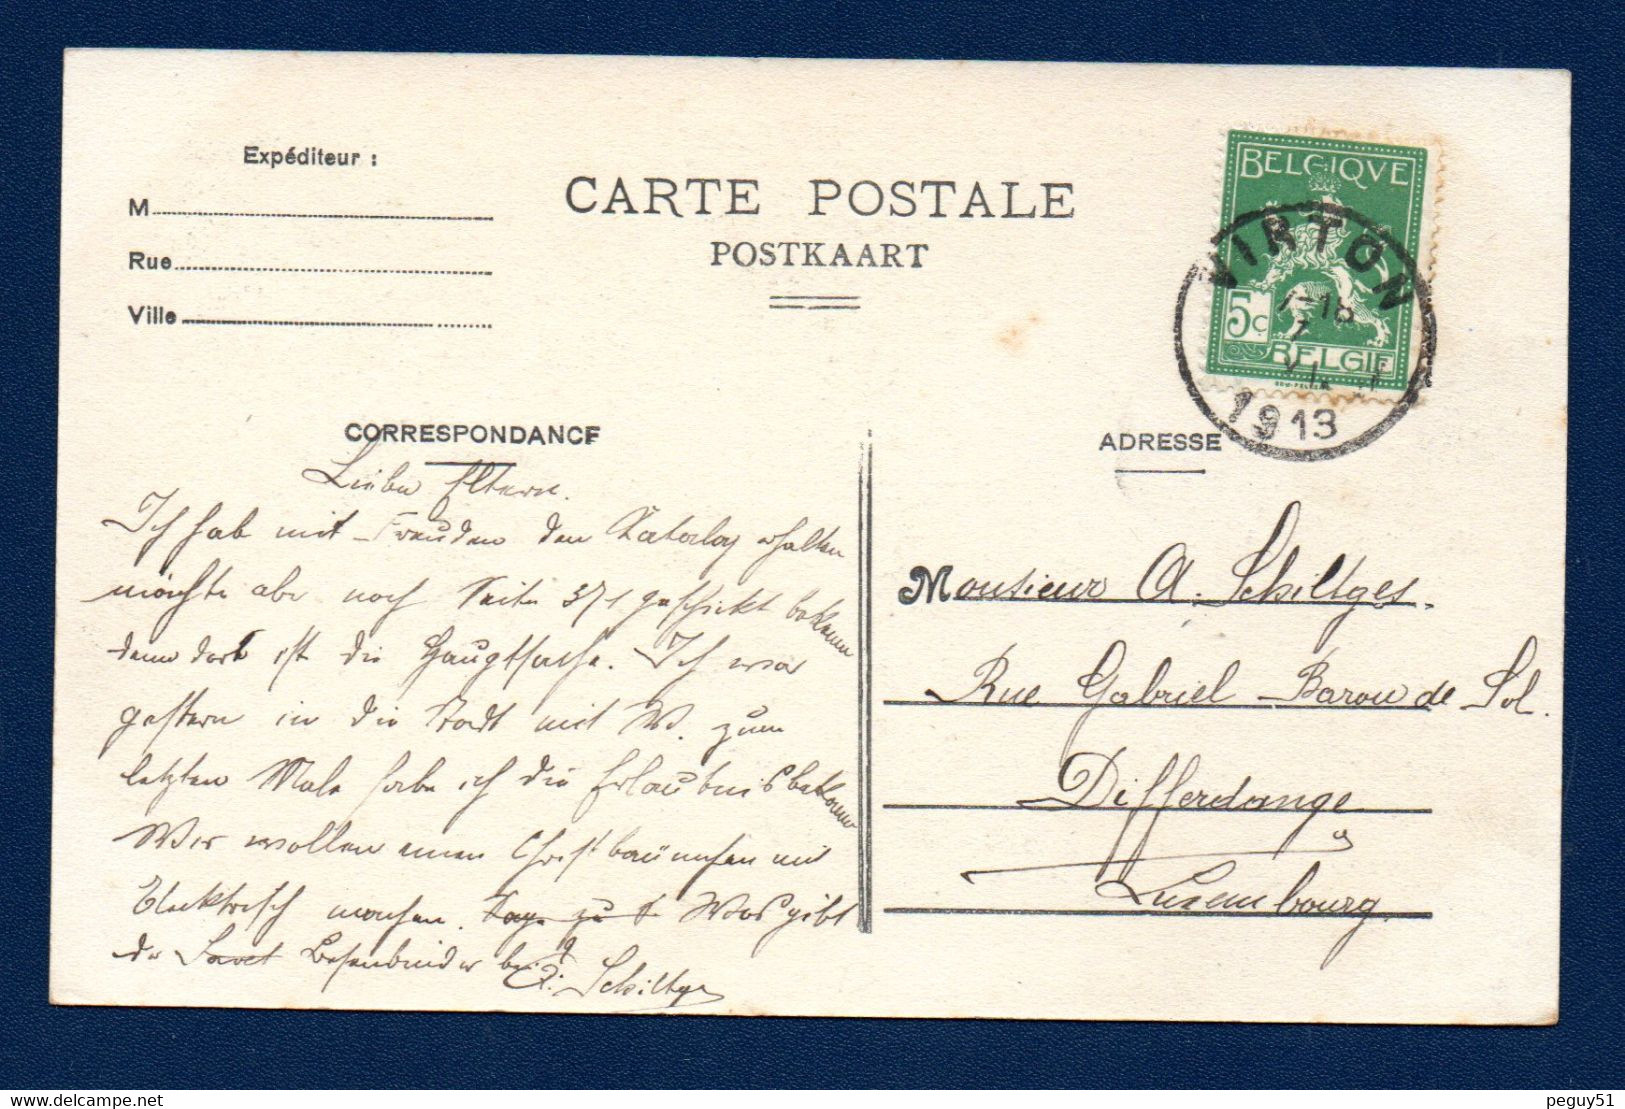 Expéditeur :
M
Rue
Ville
CARTE POSTALE
POSTKAART
BELGIQVE
5c
BELGIE
VIRTON
1913
CORRESPONDANCE
ADRESSE
Liebe Eltern.
Ich hab mit Freuden den Katalog erhalten
möchte aber noch Seite 371 geschickt bekommen
denn dort ist die Hauptsache. Ich war
gestern in die Stadt mit W. zum
letzten Male habe ich die Erlaubnis bekommen
Wir wollen einen Christbäumchen mit
Elektrisch machen. Was gibt
der Besenbinder bei
Schiltges
Monsieur A. Schiltges.
Rue Gabriel Baron de Sol.
Differdange
Luxembourg.
peguy51